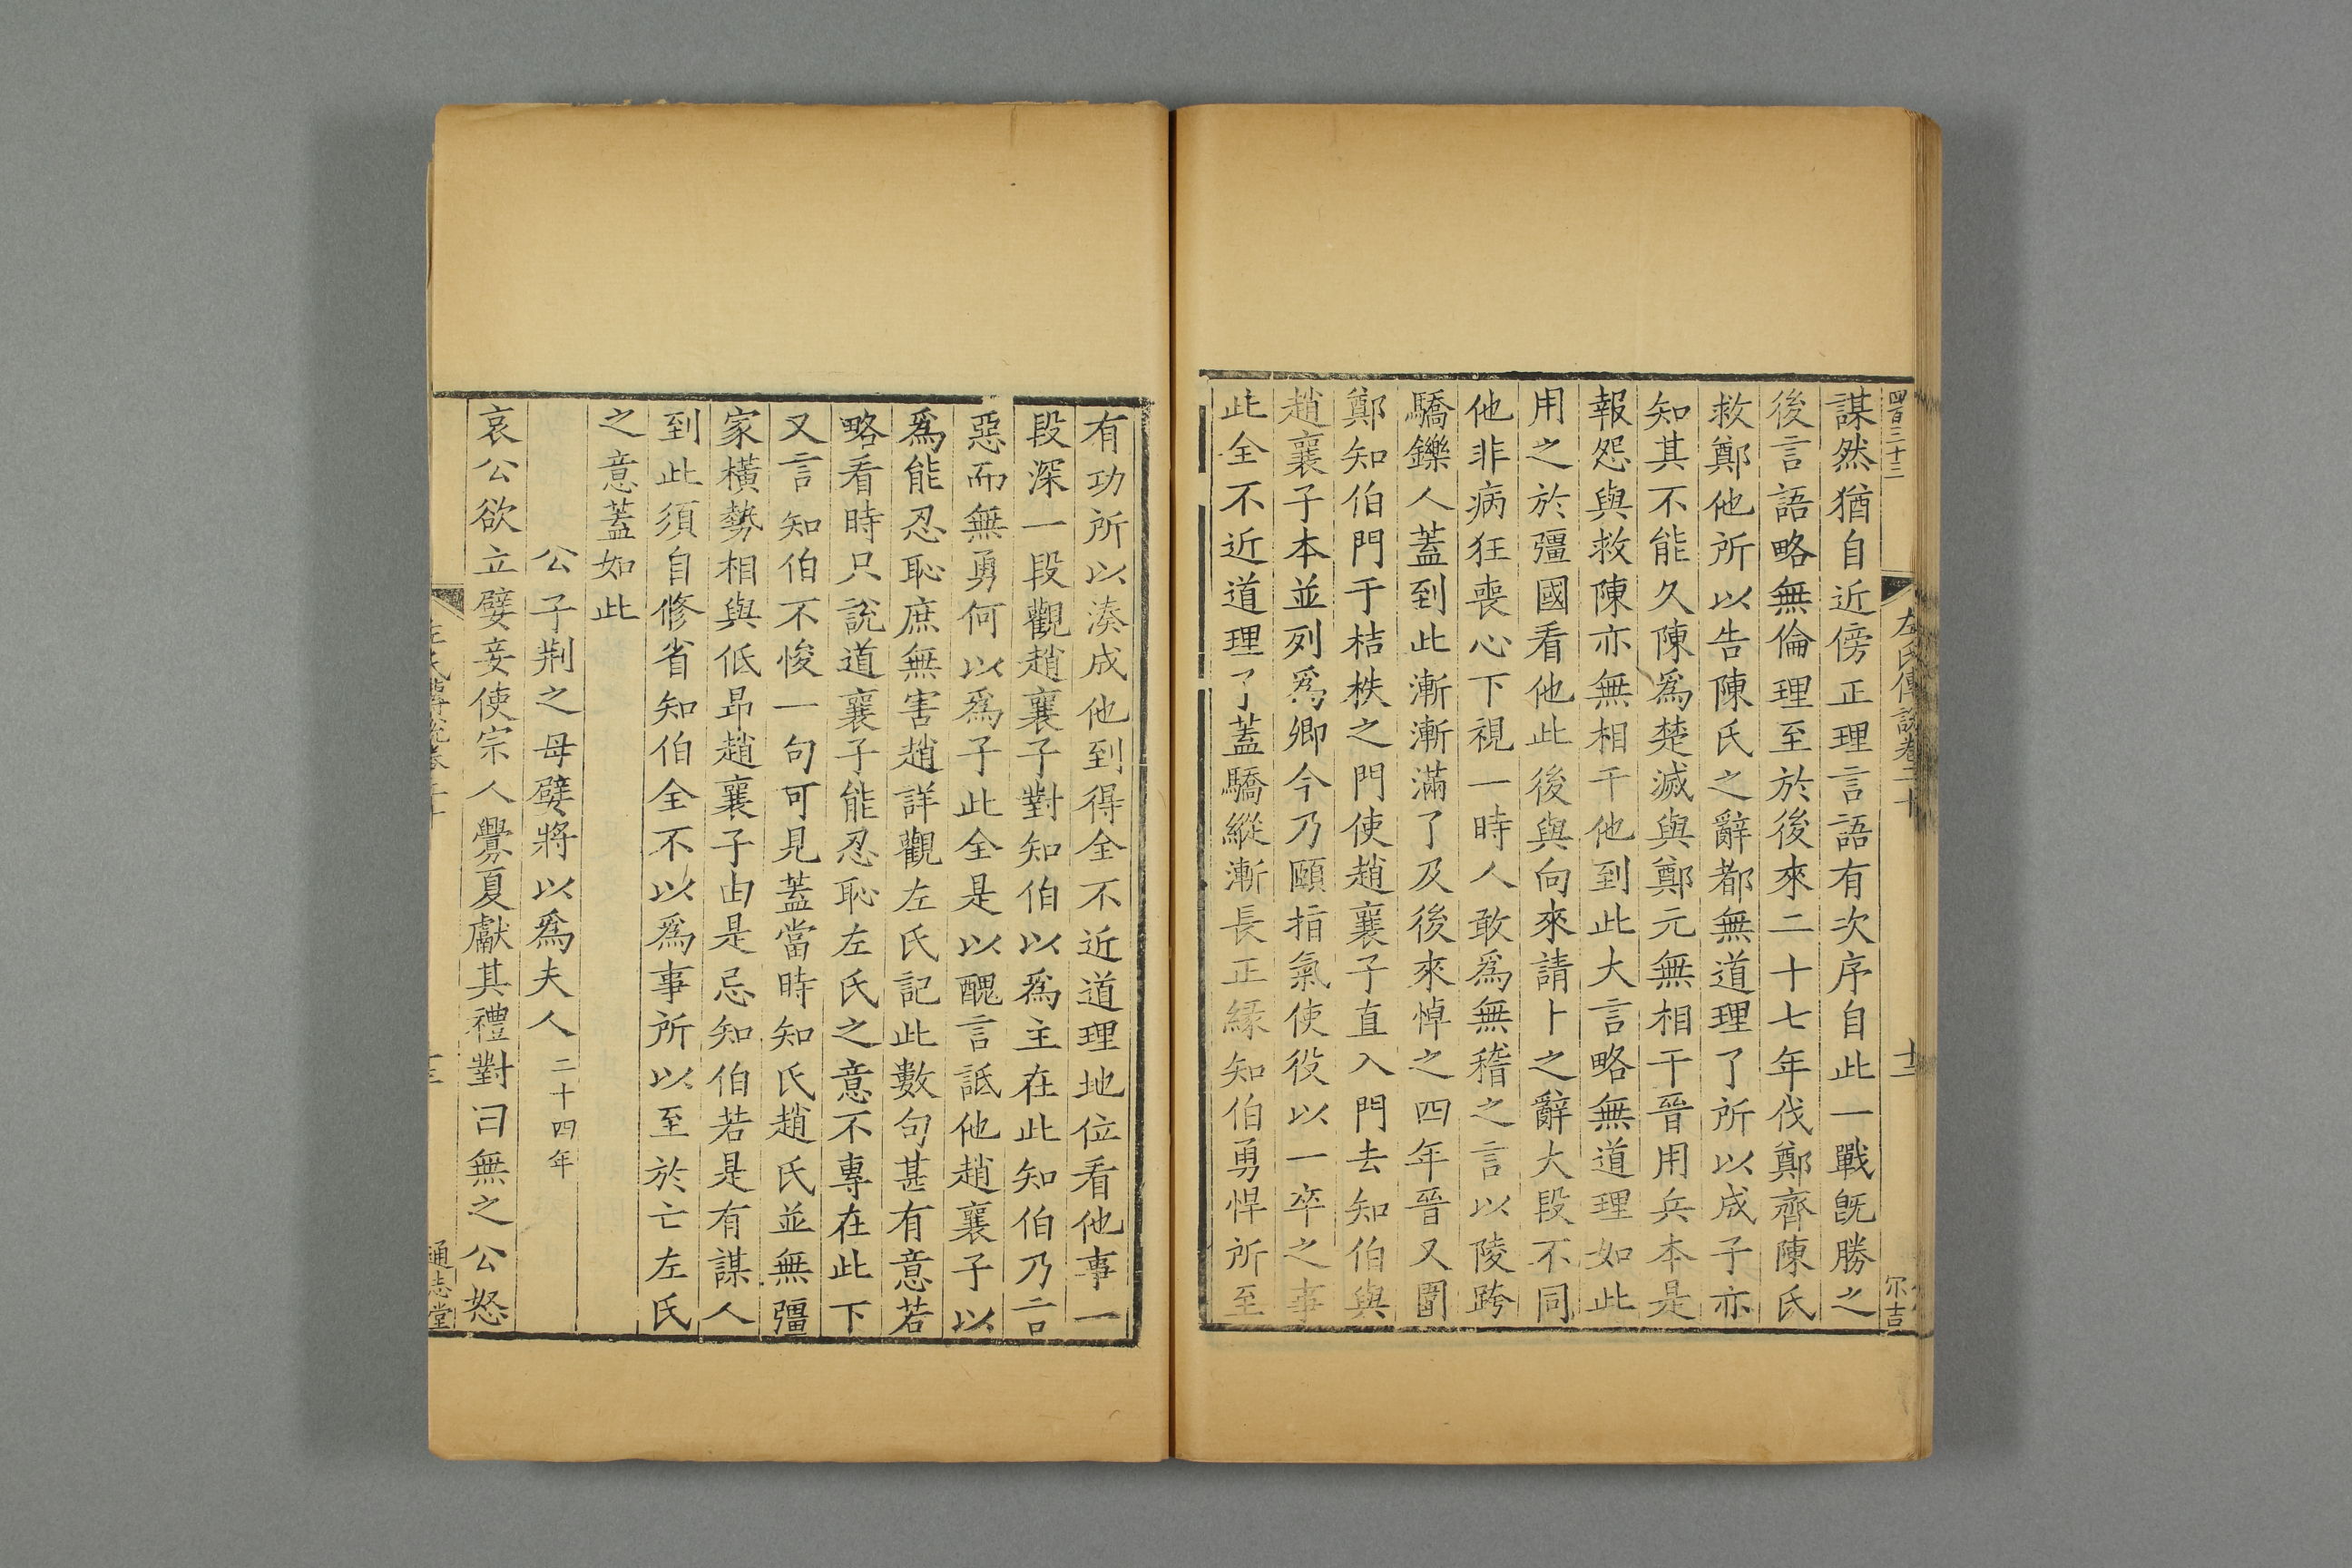 四百三十三
左氏傳說卷二十
十二
尔吉
謀然猶自近傍正理言語有次序自此一戰旣勝之
後言語略無倫理至於後來二十七年伐鄭齊陳氏
救鄭他所以告陳氏之辭都無道理了所以成子亦
知其不能久陳爲楚滅與鄭元無相干晉用兵本是
報怨與救陳亦無相干他到此大言略無道理如此
用之於彊國看他此後與向來請卜之辭大段不同
他非病狂喪心下視一時人敢爲無稽之言以陵跨
驕鑠人蓋到此漸漸滿了及後來悼之四年晉又圍
鄭知伯門于桔柣之門使趙襄子直入門去知伯與
趙襄子本並列爲卿今乃頤指氣使役以一卒之事
此全不近道理了蓋驕縱漸長正緣知伯勇悍所至
有功所以湊成他到得全不近道理地位看他事一
段深一段觀趙襄子對知伯以爲主在此知伯乃言
惡而無勇何以爲子此全是以醜言詆他趙襄子以
爲能忍恥庶無害趙詳觀左氏記此數句甚有意若
略看時只說道襄子能忍恥左氏之意不專在此下
又言知伯不悛一句可見蓋當時知氏趙氏並無彊
家橫勢相與低昂趙襄子由是忌知伯若是有謀人
到此須自修省知伯全不以爲事所以至於亡左氏
之意蓋如此
公子荆之母嬖將以爲夫人二十四年
哀公欲立嬖妾使宗人釁夏獻其禮對曰無之公怒
左氏傳說卷二十
十三
通志堂